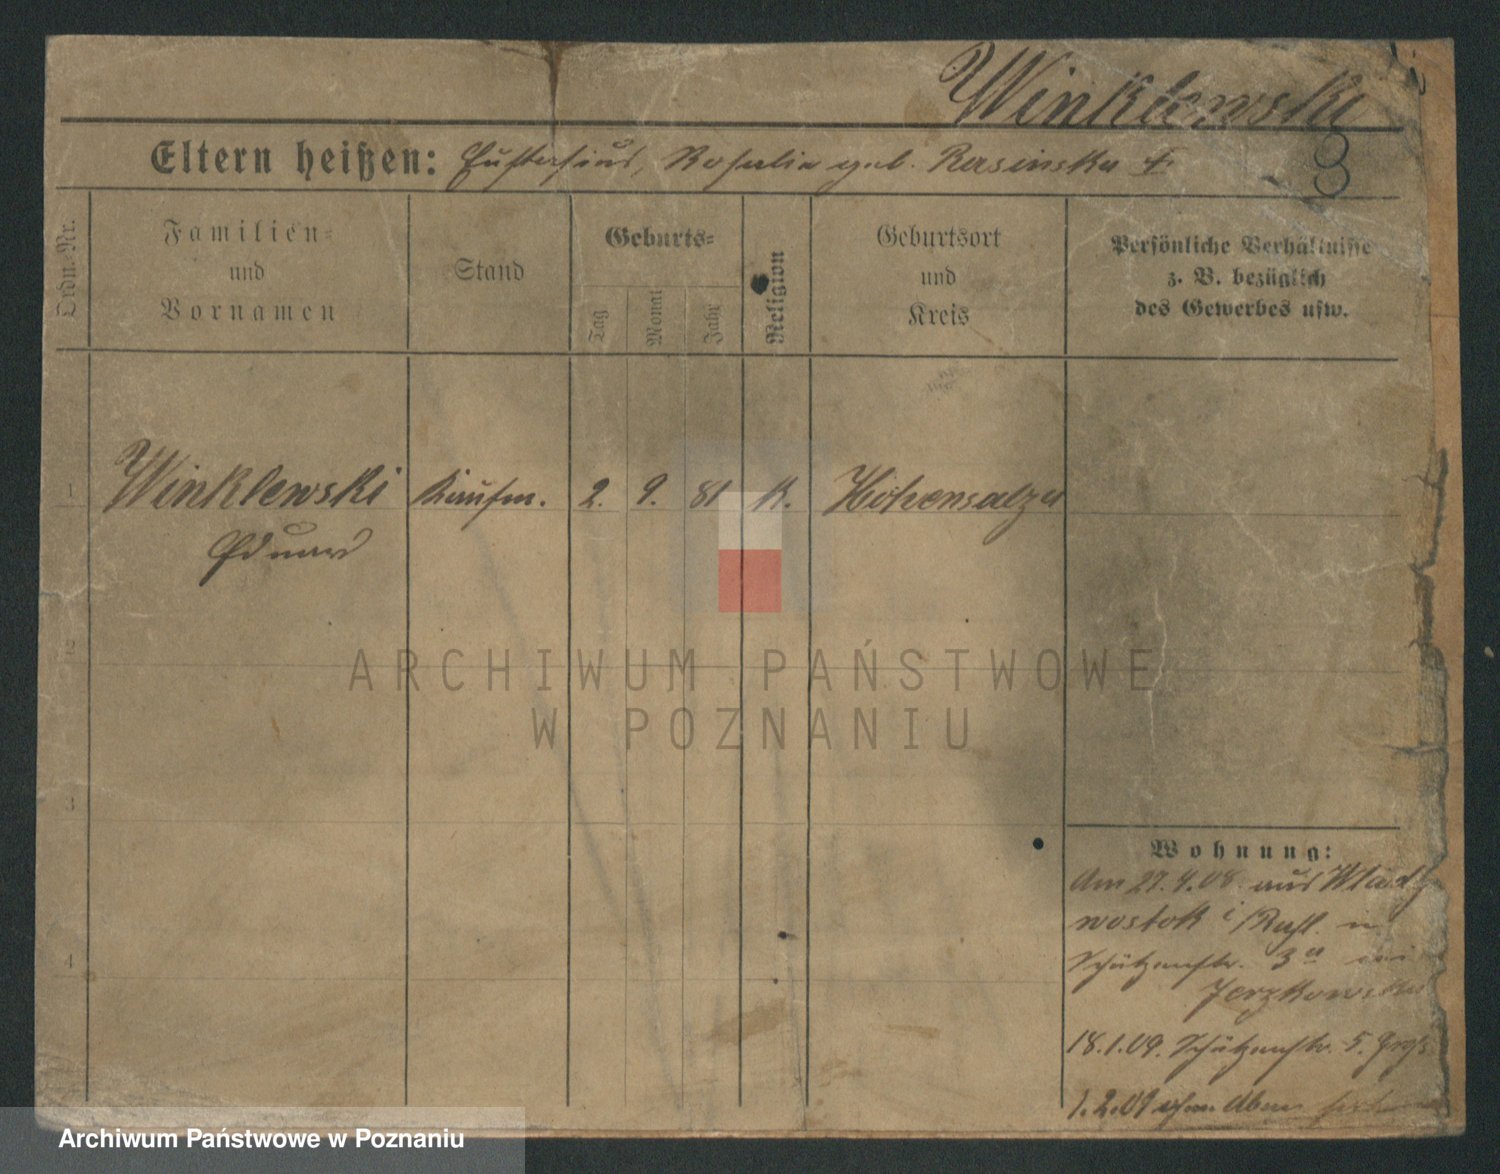 Winklewski
Eltern heißen: Eustasius, Rosalie geb. Rasinska
3
Ordn.-Nr.
Familien-
und
Vornamen
Stand
Geburts-
Tag
Monat
Jahr
Religion
Geburtsort
und
Kreis
Persönliche Verhältnisse
z. B. bezüglich
des Gewerbes usw.
1 Winklewski Kaufm. 2. 9. 81 K. Hohensalza
Eduard
2
3
4
Wohnung:
Am 27.4.08. aus Wladi
wostok i/Rußl. n
Schützenstr. 3a bei
Jerzkowska
18.1.09. Schützenstr. 5.
1.2.09
ARCHIWUM PAŃSTWOWE
W POZNANIU
Archiwum Państwowe w Poznaniu